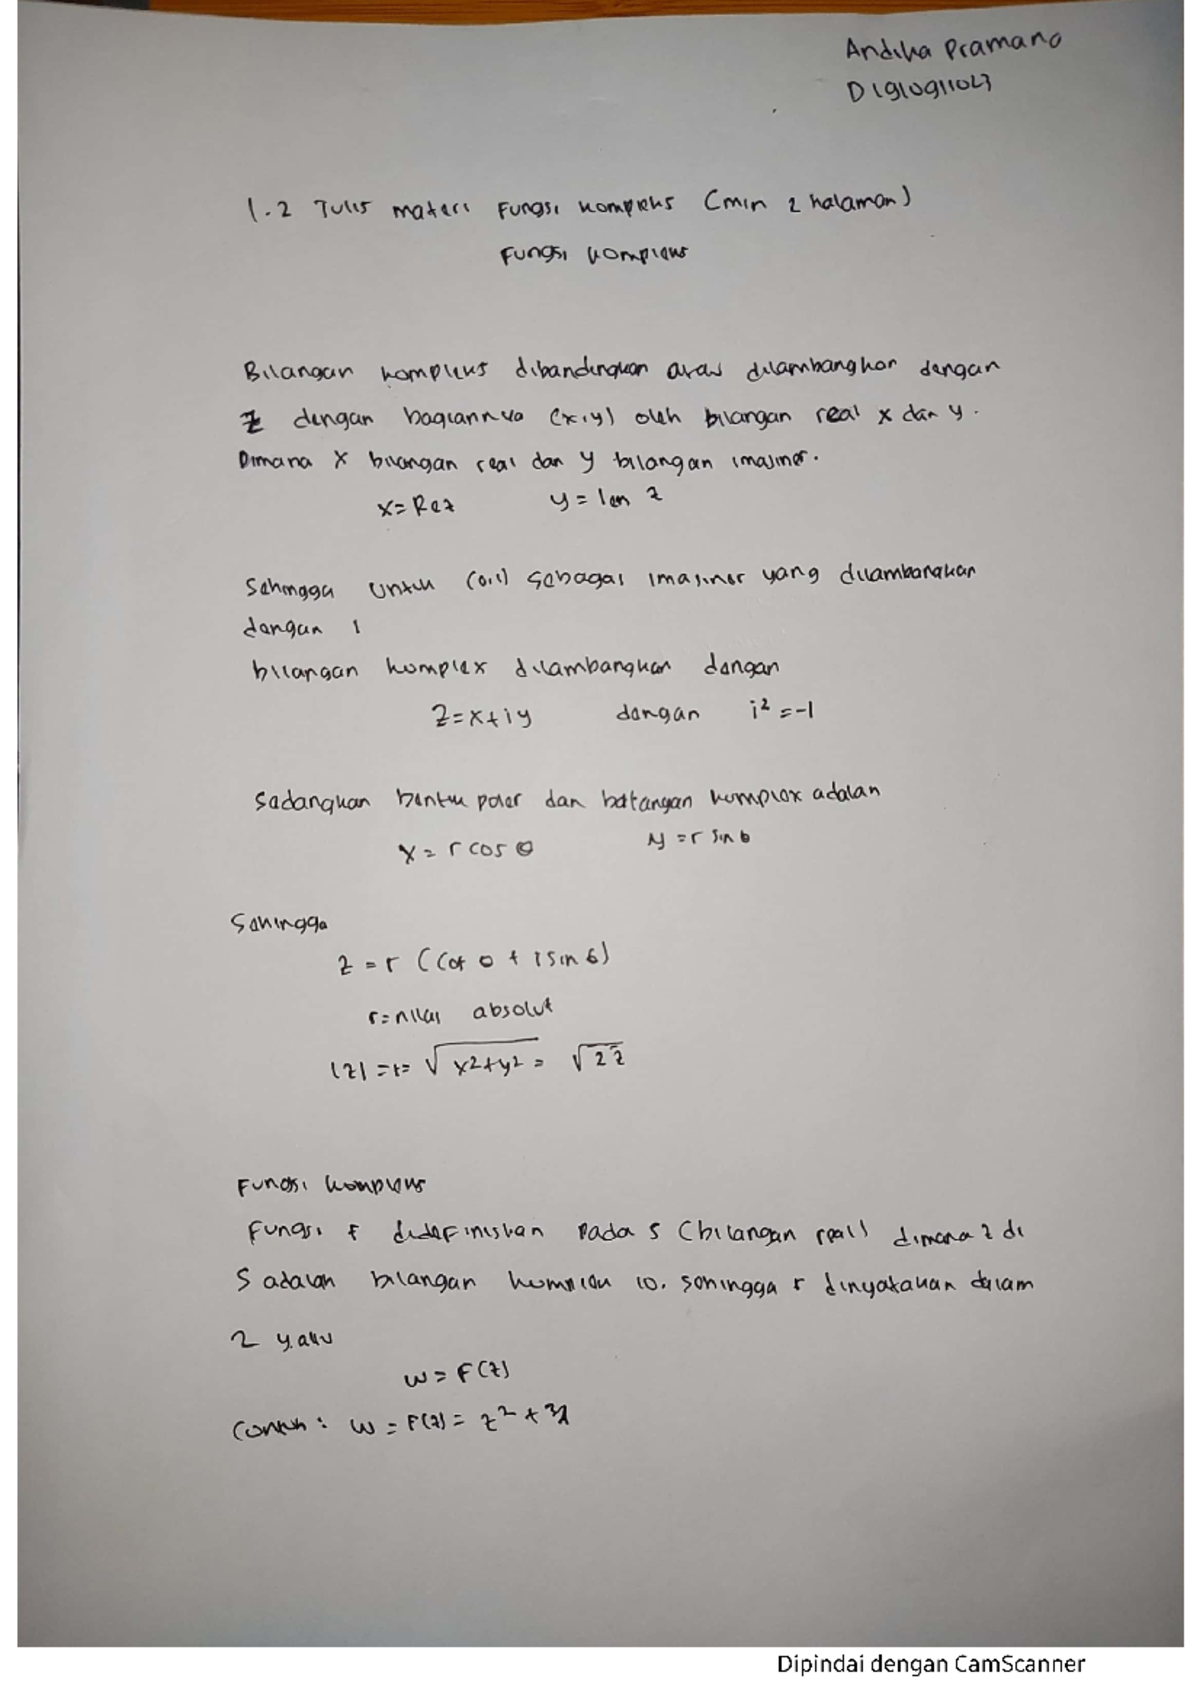 Andika Pramano
D1910911023
1.2 Tulis materi Fungsi kompleks (min 2 halaman)
Fungsi kompleks
Bilangan kompleks dibandingkan atau dilambangkan dengan
Z dengan bagiannya (x,y) oleh bilangan real x dan y.
Dimana x bilangan real dan y bilangan imajiner.
x = Re z y = Im z
Sehingga untuk (0,1) sebagai imajiner yang dilambangkan
dengan i
bilangan komplex dilambangkan dengan
Z = x + iy dengan i² = -1
Sedangkan bentuk polar dan komplex adalah
x = r cos θ y = r sin θ
Sehingga
z = r (cos θ + i sin θ)
r = nilai absolut
|z| = r = √x²+y² = √z z̄
Fungsi kompleks
Fungsi f didefinisikan pada S (bilangan real) dimana z di
S adalah bilangan sehingga dinyatakan dalam
2 yaitu
w = F(z)
Contoh : w = F(z) = z² + 3z
Dipindai dengan CamScanner